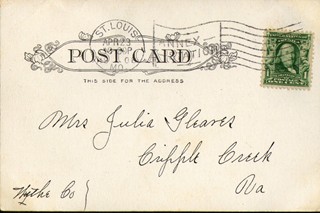 ST. LOUIS
APR 23
MO.
POST CARD
THIS SIDE FOR THE ADDRESS
Mrs Julia Gleaves
Cripple Creek
Wythe Co } Va